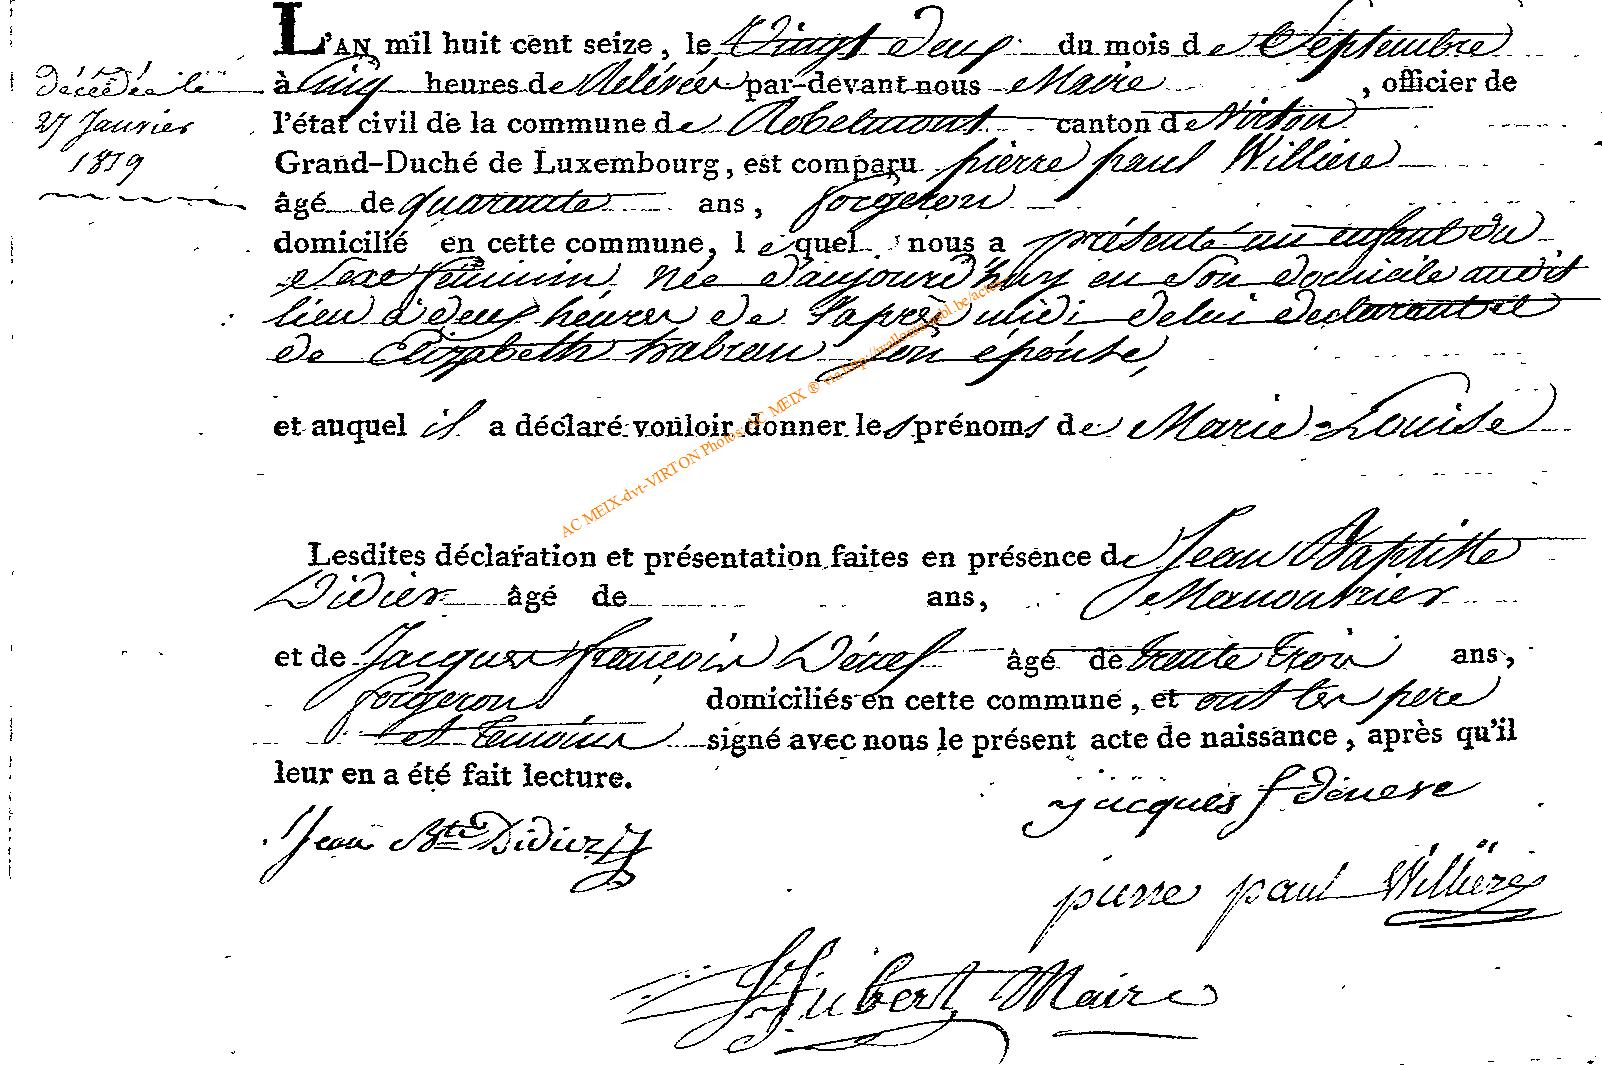 décédée le
27 Janvier
1819
L'AN mil huit cent seize, le Vingt deux du mois de Septembre
à Cinq heures de Relévée par-devant nous Maire, officier de
l'état civil de la commune de Robelmont canton de Virton
Grand-Duché de Luxembourg, est comparu pierre paul Williere
âgé de quarante ans, forgeron
domicilié en cette commune, lequel nous a présenté un enfant du
Sexe féminin, née d'aujourd'huy en son domicile audit
lieu à deux heures de l'après midi de lui declarant et
de Elizabeth habran son épouse,
et auquel il a déclaré vouloir donner les prénoms de Marie-Louise
AC MEIX-dvt-VIRTON Photos AC MEIX ®
Lesdites déclaration et présentation faites en présence de Jean Baptiste
Didier âgé de ans, Manouvrier
et de Jacques françois Dénef âgé de trente trois ans,
forgeron domiciliés en cette commune, et ont les pere
et temoins signé avec nous le présent acte de naissance, après qu'il
leur en a été fait lecture.
jacques f denere
Jean Bte Didier
pierre paul Williere
Hubert Maire